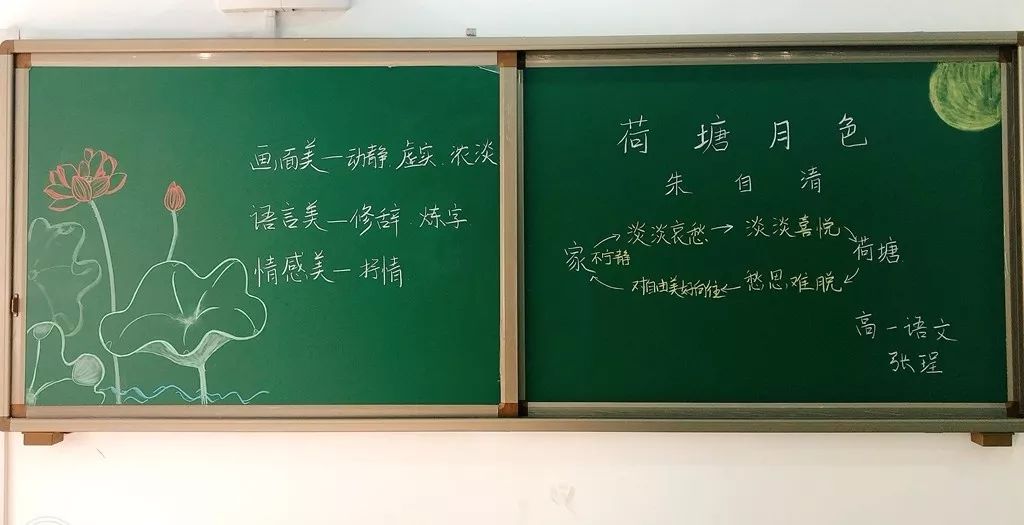 画面美—动静 虚实 浓淡
语言美—修辞 炼字
情感美—抒情
荷塘月色
朱自清
淡淡哀愁→淡淡喜悦
家 不宁静 荷塘
对自由美好向往←愁思难脱
高一语文
张瑆